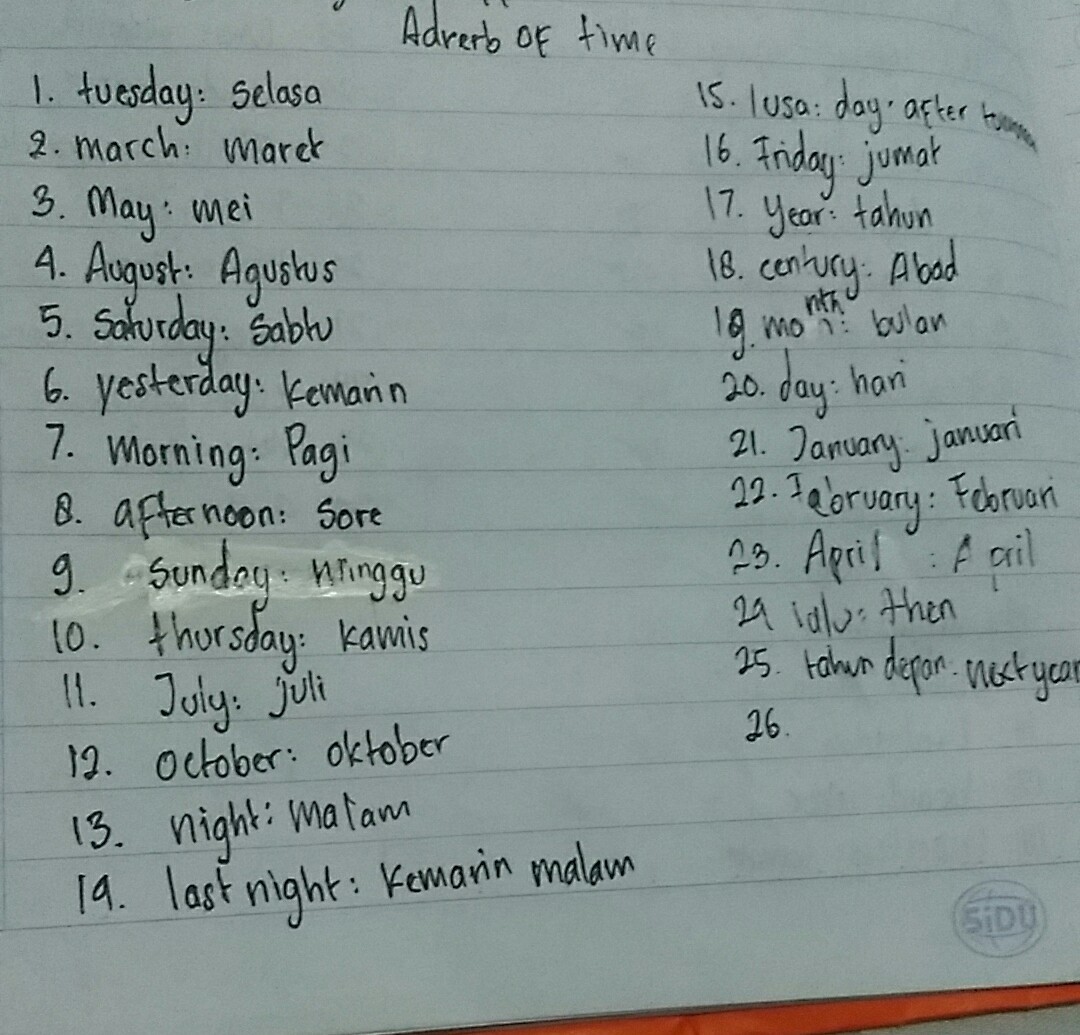 Adverb OF time
1. tuesday: Selasa
2. march: maret
3. May: mei
4. August: Agustus
5. Saturday: Sabtu
6. yesterday: Kemarin
7. Morning: Pagi
8. afternoon: Sore
9. Sunday: Minggu
10. thursday: kamis
11. July: juli
12. October: oktober
13. night: malam
14. last night: Kemarin malam
15. lusa: day after
16. Friday: jumat
17. Year: tahun
18. century: Abad
19. month: bulan
20. day: hari
21. January: januari
22. February: Februari
23. April : April
24 lalu: then
25. tahun depan: next year
26.
SiDU